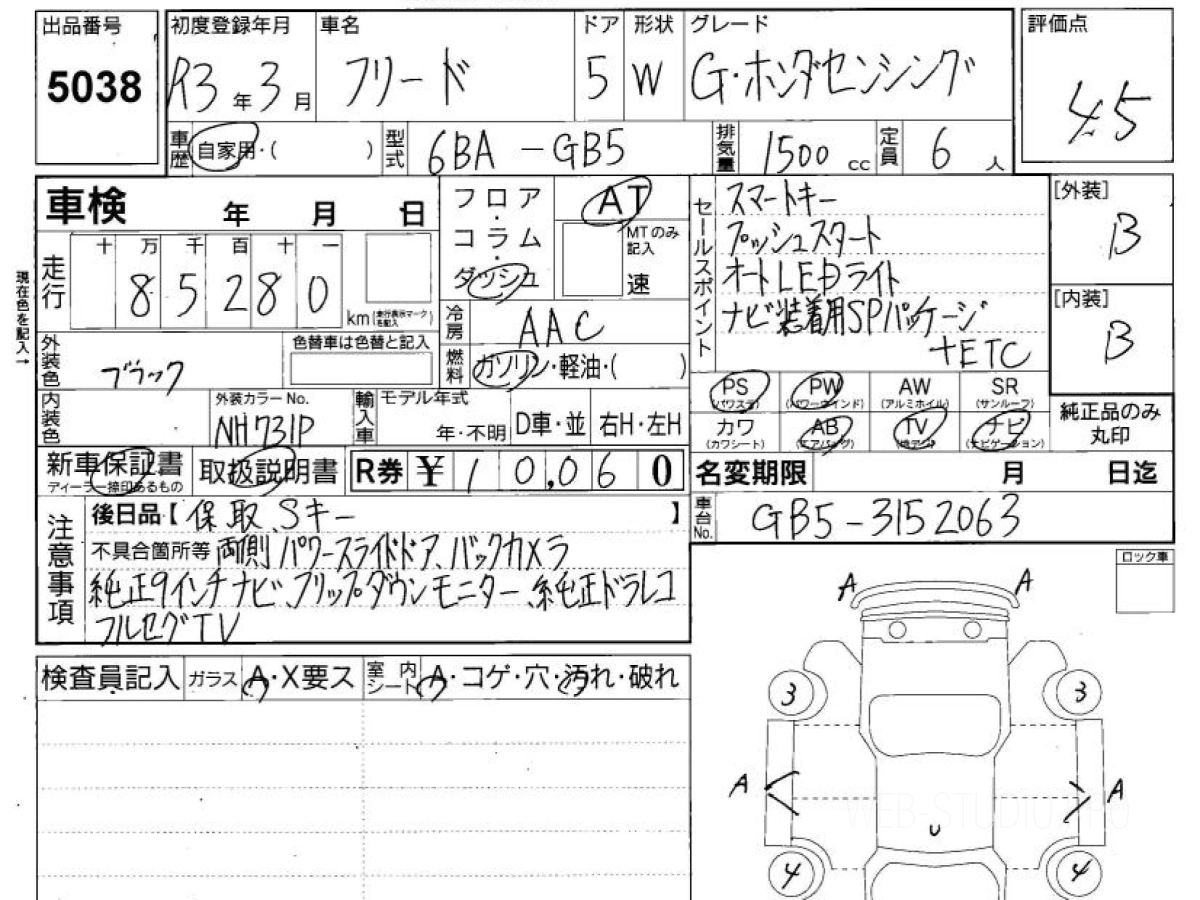 出品番号
5038
初度登録年月
R3年3月
車名
フリード
ドア
5
形状
W
グレード
G・ホンダセンシング
評価点
4.5
車歴
自家用・( )
型式
6BA-GB5
排気量
1500 cc
定員
6人
車検 年 月 日
フロア・コラム・ダッシュ
AT
MTのみ記入
速
セールスポイント
スマートキー
プッシュスタート
オートLEDライト
ナビ装着用SPパッケージ
+ETC
[外装]
B
[内装]
B
現在色を記入→
走行
十 万 千 百 十 一
8 5 2 8 0
km(走行表示マークを記入)
冷房
AAC
燃料
ガソリン・軽油・( )
外装色
ブラック
色替車は色替と記入
内装色
外装カラーNo.
NH731P
輸入車
モデル年式
年・不明
D車・並
右H・左H
PS
(パワステ)
PW
(パワーウインド)
AW
(アルミホイル)
SR
(サンルーフ)
カワ
(カワシート)
AB
(エアバッグ)
TV
(地デジ)
ナビ
(ナビゲーション)
純正品のみ
丸印
新車保証書
ディーラー捺印あるもの
取扱説明書
R券 ¥ 10,060
名変期限 月 日迄
車台No.
GB5-3152063
注意事項
後日品【保取、Sキー 】
不具合箇所等 両側パワースライドドア、バックカメラ
純正9インチナビ、フリップダウンモニター、純正ドラレコ
フルセグTV
ロック車
検査員記入
ガラス
A・X要ス
室内シート
A・コゲ・穴・汚れ・破れ
A A
3 3
A A
U
4 4
WEB-STUDIO.PRO